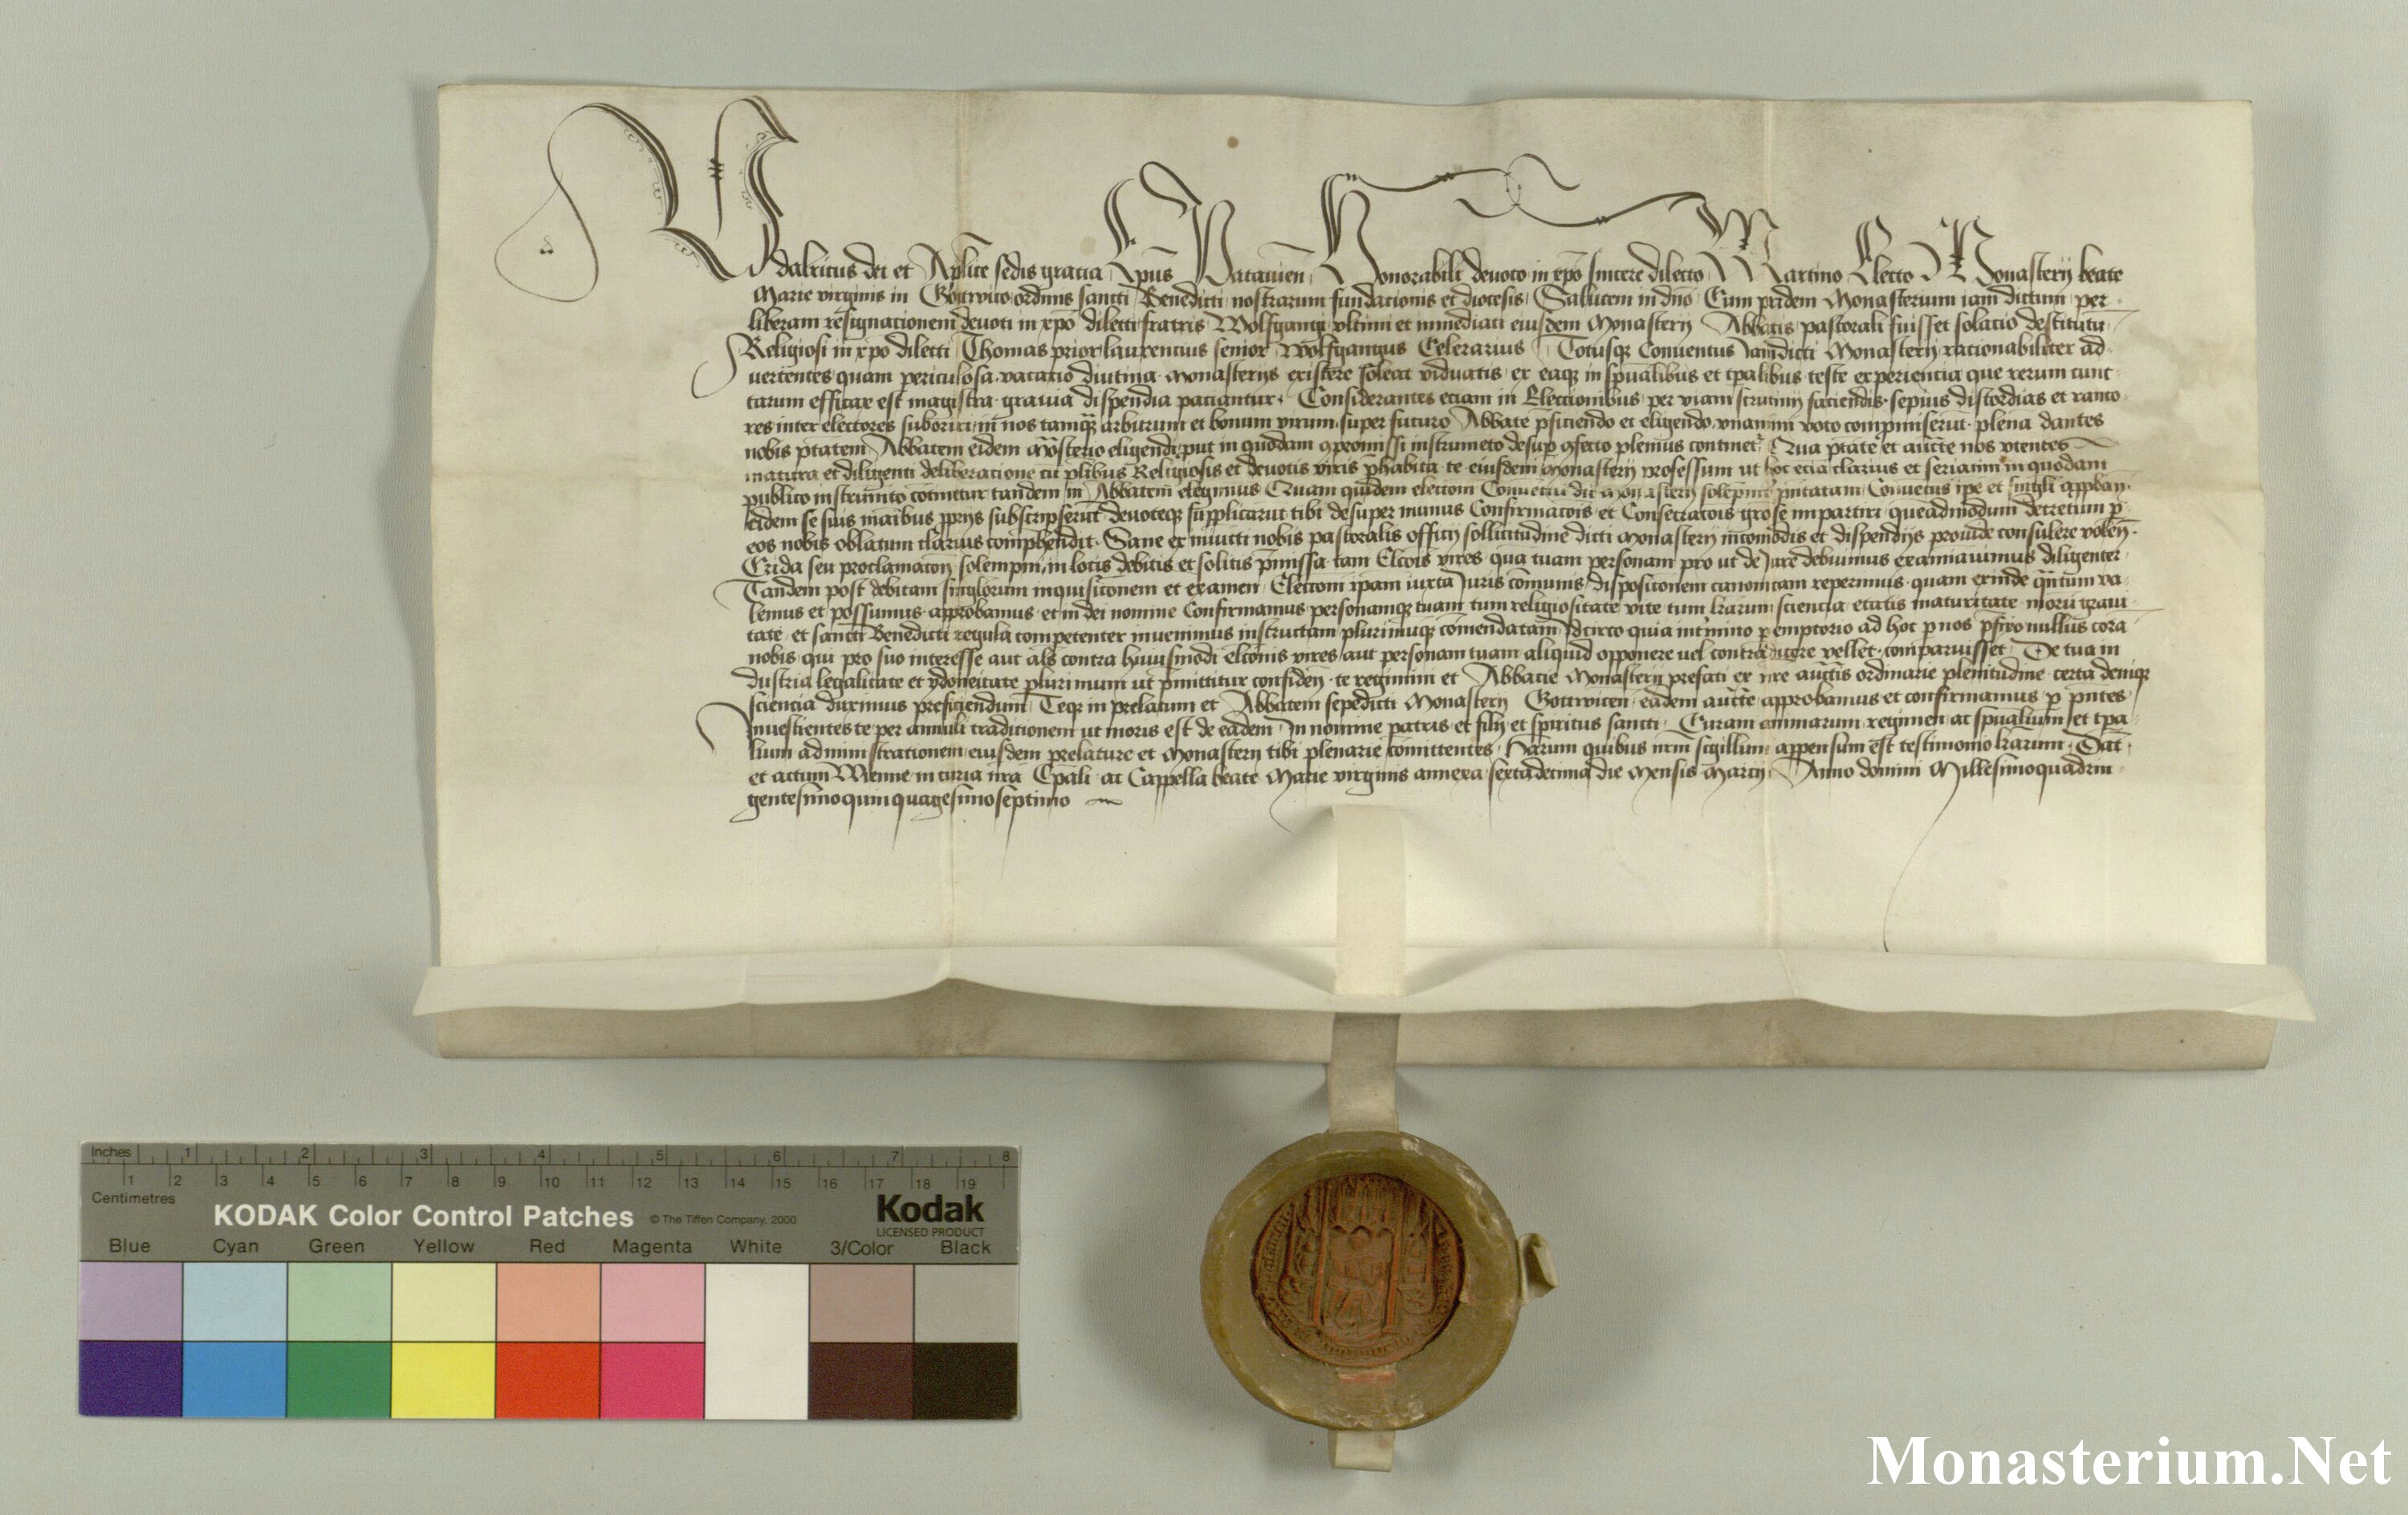 Udalricus dei et Aplice sedis gratia Epus Patauien Honorabili deuoto in xpo sincere dilecto Martino Electo Monastery beate
Marie virginis in Gottwico ordinis sancti Benedicti nostrarum fundationis et diocesis Salutem in dno Cum pridem Monasterium iam dictum per
liberam resignationem deuoti in xpo dilecti fratris Wolfgangi vltimi et inmediati eiusdem Monastery Abbatis pastorali fuisset solacio destitutu
Religiosi in xpo dilecti Thomas prior laurencius senior Wolfgangus Celerarius Totusq Conuentus Jamdicti Monastery rationabiliter ad
uertentes quam periculosa vacatio diutina Monasterys existere soleat viduatis ex eaq in spualibus et tpalibus teste experiencia que rerum cunc
tarum efficax est magistra grauia dispendia paciantur Considerantes eciam in Electionibus per viam scrutiny faciendis sepius discordias et ranco
res inter electores suboriri in nos tamq arbitrum et bonum virum super futuro Abbate pficiendo et eligendo vnanimi voto compmiserut plena dantes
nobis ptatem Abbatem eidem Mostrio eligendi put in quodam cpromissi instrumeto desup cfecto plenius continet Qua ptate et aucte nos vtentes
matura et diligenti deliberatione cu plibus Religiosis et deuotis viris phabita te eiusdem Monastery professum ut hoc ecia clarius et seriatim in quodam
publico instrumto cotinetur tandem in Abbatem elegimus Quam quidem electom Conuetui dci Monastery solepnit pntatam Conuetus ipe et singli appban
eidem se suis maibus pprys subscripserut deuoteq supplicarut tibi desuper munus Confirmatois et Consecratois grose impartiri queadmodum decretum p
eos nobis oblatum clarius comphendit Sane ex iniucti nobis pastoralis officy sollicitudine dicti Monastery incomodis et dispendys prouide consulere volen
Crida seu proclamacon solempni in locis debitis et solitis pmissa tam Elcois vires qua tuam personam pro ut de Jure debuimus examiauimus diligenter
Tandem post debitam singlorum inquisiconem et examen Electom ipam iuxta Juris comunis disposiconem canonicam reperimus quam exinde qntum va
lemus et possumus approbamus et in dei nomine Confirmamus personamq tuam tum religiositate vite tum lrarum sciencia etatis maturitate moru graui
tate et sancti Benedicti regula competenter inuenimus instructam plurimuq comendatam Idcirco quia in tmino pemptorio ad hoc p nos pfixo nullus cora
nobis qui pro suo interesse aut als contra huiusmodi elconis vires aut personam tuam aliquid opponere uel contradicere vellet comparuisset De tua in
dustria legalitate et ydoneitate plurimum ut pmittitur confiden te regimini et Abbacie Monastery prefati ex nre auctis ordinarie plenitudine certa deniq
sciencia duximus preficiendum Teq in prelatum et Abbatem sepedicti Monastery Gottwicen eadem aucte approbamus et confirmamus p pntes
Inuestientes te per annuli traditionem ut moris est de eadem In nomine patris et fily et spiritus sancti Curam animarum regimen ac spualium et tpa
lium administrationem eiusdem prelature et Monastery tibi plenarie comittentes Harum quibus nrm sigillum appensum est testimonio lrarum Dat
et actum Wienne in curia nra Epali ac Cappella beate Marie virginis annexa sextadecima die Mensis Marcy Anno domini Millesimoquadrin
gentesimoquinquagesimoseptimo
Inches 1 2 3 4 5 6 7 8
1 2 3 4 5 6 7 8 9 10 11 12 13 14 15 16 17 18 19
Centimetres
KODAK Color Control Patches © The Tiffen Company, 2000 Kodak
LICENSED PRODUCT
Blue Cyan Green Yellow Red Magenta White 3/Color Black
Monasterium.Net